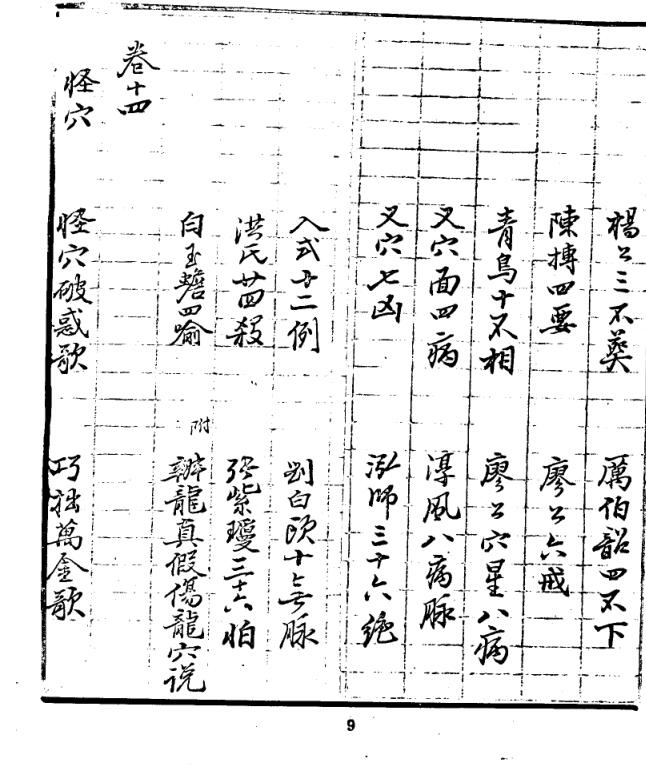 楊公三不葬 厲伯韶四不下
陳摶四要 廖公六戒
青烏十不相 廖公穴星八病
又穴面四病 淳風八病脈
又穴七凶 泓師三十六絶
入式廿二例 劉白頭十无脈
洪氏廿四殺 張紫瓊三十六怕
白玉蟾四喻 附 辨龍真假傷龍穴说
卷十四
怪穴 怪穴破惑歌 巧拙萬金歌
9